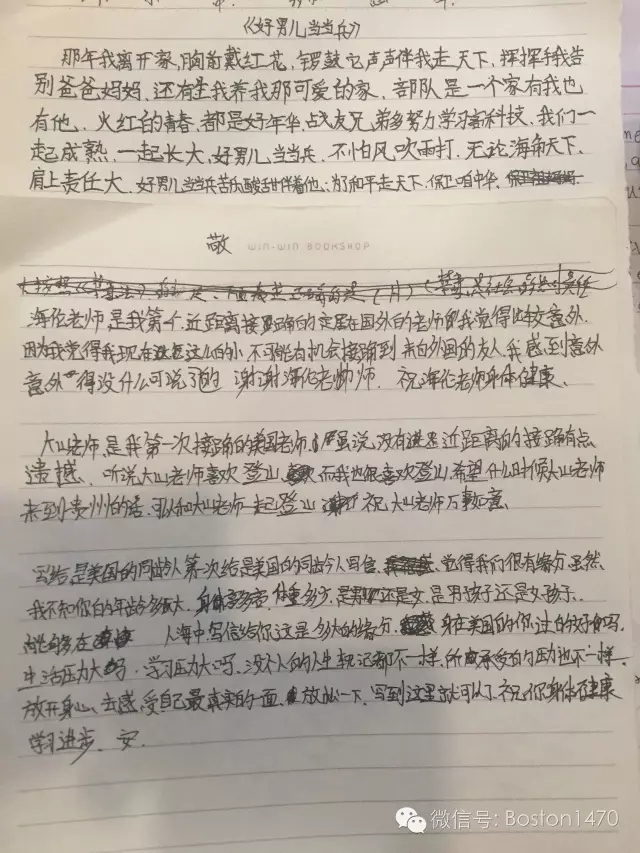 《好男儿当当兵》
那年我离开家,胸前戴红花,锣鼓它声声伴我走天下,挥挥手我告
别爸爸妈妈,还有生我养我那可爱的家,部队是一个家有我也
有他,火红的青春,都是好年华,战友兄弟多努力学习新科技,我们一
起成熟,一起长大,好男儿当当兵,不怕风吹雨打,无论海角天下,
肩上责任大,好男儿当兵苦乐酸甜伴着他,为了和平走天下,保卫咱中华,
敬 WIN-WIN BOOKSHOP
海伦老师,是我第一个近距离接触的定居在国外的老师,我觉得比较意外,
因为我觉得我现在这么的小,不可能有机会接触到来自外国的友人,我感到意外
意外得没什么可说了的 谢谢海伦老师 祝海伦老师身体健康、
大山老师,是我第一次接触的美国老师,虽说没有进近距离的接触有点
遗憾,听说大山老师喜欢登山,而我也很喜欢登山,希望什么时候大山老师
来到贵州的话,可以和大山老师一起登山 祝大山老师万事如意、
写给是美国的同龄人 第一次给是美国的同龄人写信,觉得我们很有缘分,虽然
我不知你的年龄多大,身高多高,体重多少,是男还是女,是男孩子还是女孩子、
能够在 人海中,写信给你这是多大的缘分,身在美国的你过的好吗,
生活压力大吗,学习压力大吗,没个人的人生轨记都不一样,所承受的压力也不一样,
放开身心,去感受自己最真实的一面,放松一下,写到这里就可以了,祝你身体健康
学习进步、安、
微信号: Boston1470